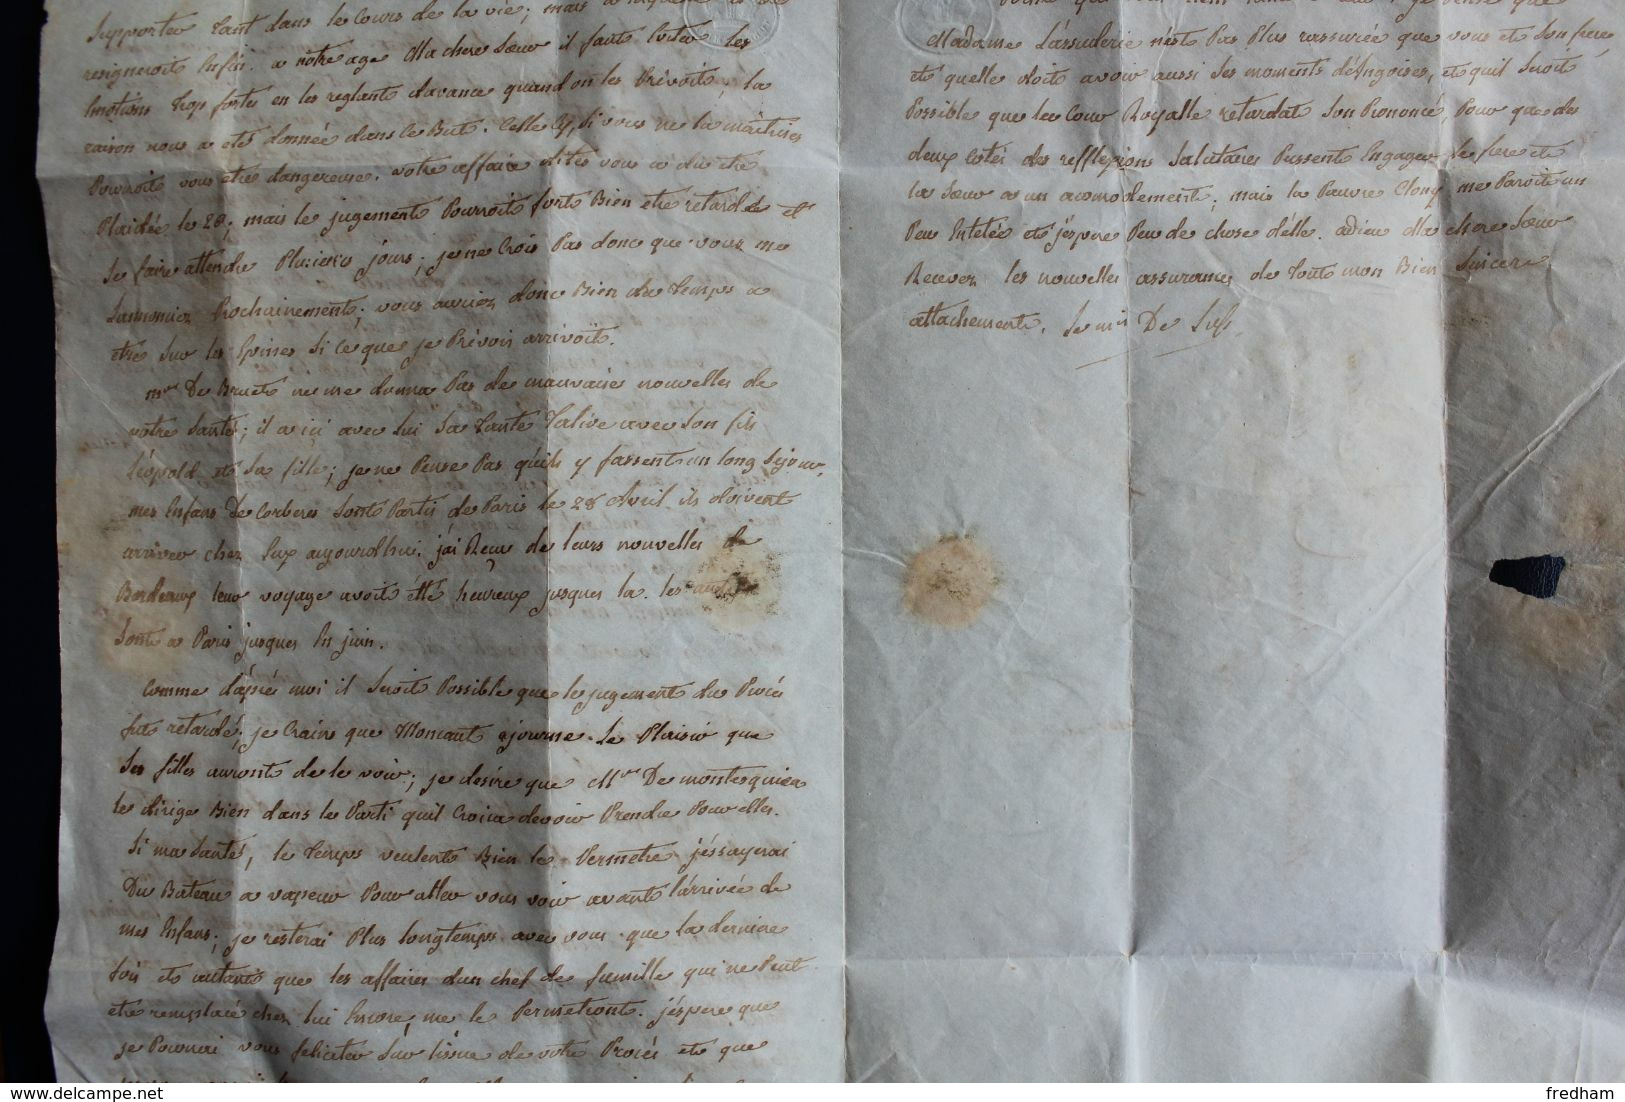 supporter tant dans le Cours de la vie; mais
resigneroit Enfin. a notre age Ma chere Sœur il faut Eviter les
Emotions trop fortes en les reglant davance quand on les Prévoit, la
raison nous a eté donnée dans ce But. Celle Cy, si vous ne la maitrisez
Pourroit vous etre dangereuse. votre affaire dites vous a du etre
Plaidée le 28; mais le jugement Pourroit fort Bien etre retardé et
se faire attendre Plusieurs jours; je ne Crois Pas donc que vous me
Lannonciez Prochainement; vous auriez donc Bien du temps a
etre sur les Epines si ce que je Prévois arrivoit.
mr De Bruet ne me donna Pas de mauvaises nouvelles de
votre Santé; il a ici avec lui Sa tante Talive avec Son fils
Léopold et Sa fille; je ne Pense Pas qu'ils y fassent un long Séjour.
mes Enfans De Corberes Sont Partis de Paris le 28 Avril ils doivent
arriver chez Eux aujourdhui, j'ai Reçu de leurs nouvelles de
Bordeaux leur voyage avoit été heureux jusques la. les autres
Sont a Paris jusques En juin.
Comme d'après moi il Seroit Possible que le jugement du Procès
fut retardé; je Crains que Moncaut ajourne le Plaisir que
Ses filles auront de le voir; je desire que Mr De montesquieu
le dirige Bien dans le Parti quil Croira devoir Prendre Pour elles.
Si ma Santé, le temps veulent Bien le Permetre j'éssayerai
Du Bateau a vapeur Pour aller vous voir avant l'arrivée de
mes Enfans; je resterai Plus longtemps avec vous que la derniere
fois et autant que les affaires dun chef de famille qui ne Peut
etre remplacé chez lui Encore, me le Permetront. j'éspere que
je Pourrai vous feliciter Sur l'issue de votre Procès et que
Madame Lassulerie n'est Pas Plus rassurée que vous et Son frere
et quelle doit avoir aussi Ses moments d'Angoises, et quil Seroit
Possible que la Cour Royalle retardat Son Prononcé, Pour que des
deux Cotés des refflexions Salutaires Pussent Engager le frere et
la Sœur a un acomodement; mais la Pauvre Clony me Paroit un
Peu Entetée et j'éspere Peu de chose d'élle. adieu Ma chere Sœur
Recevez les nouvelles assurances de tout mon Bien Sincere
attachement.
fredham